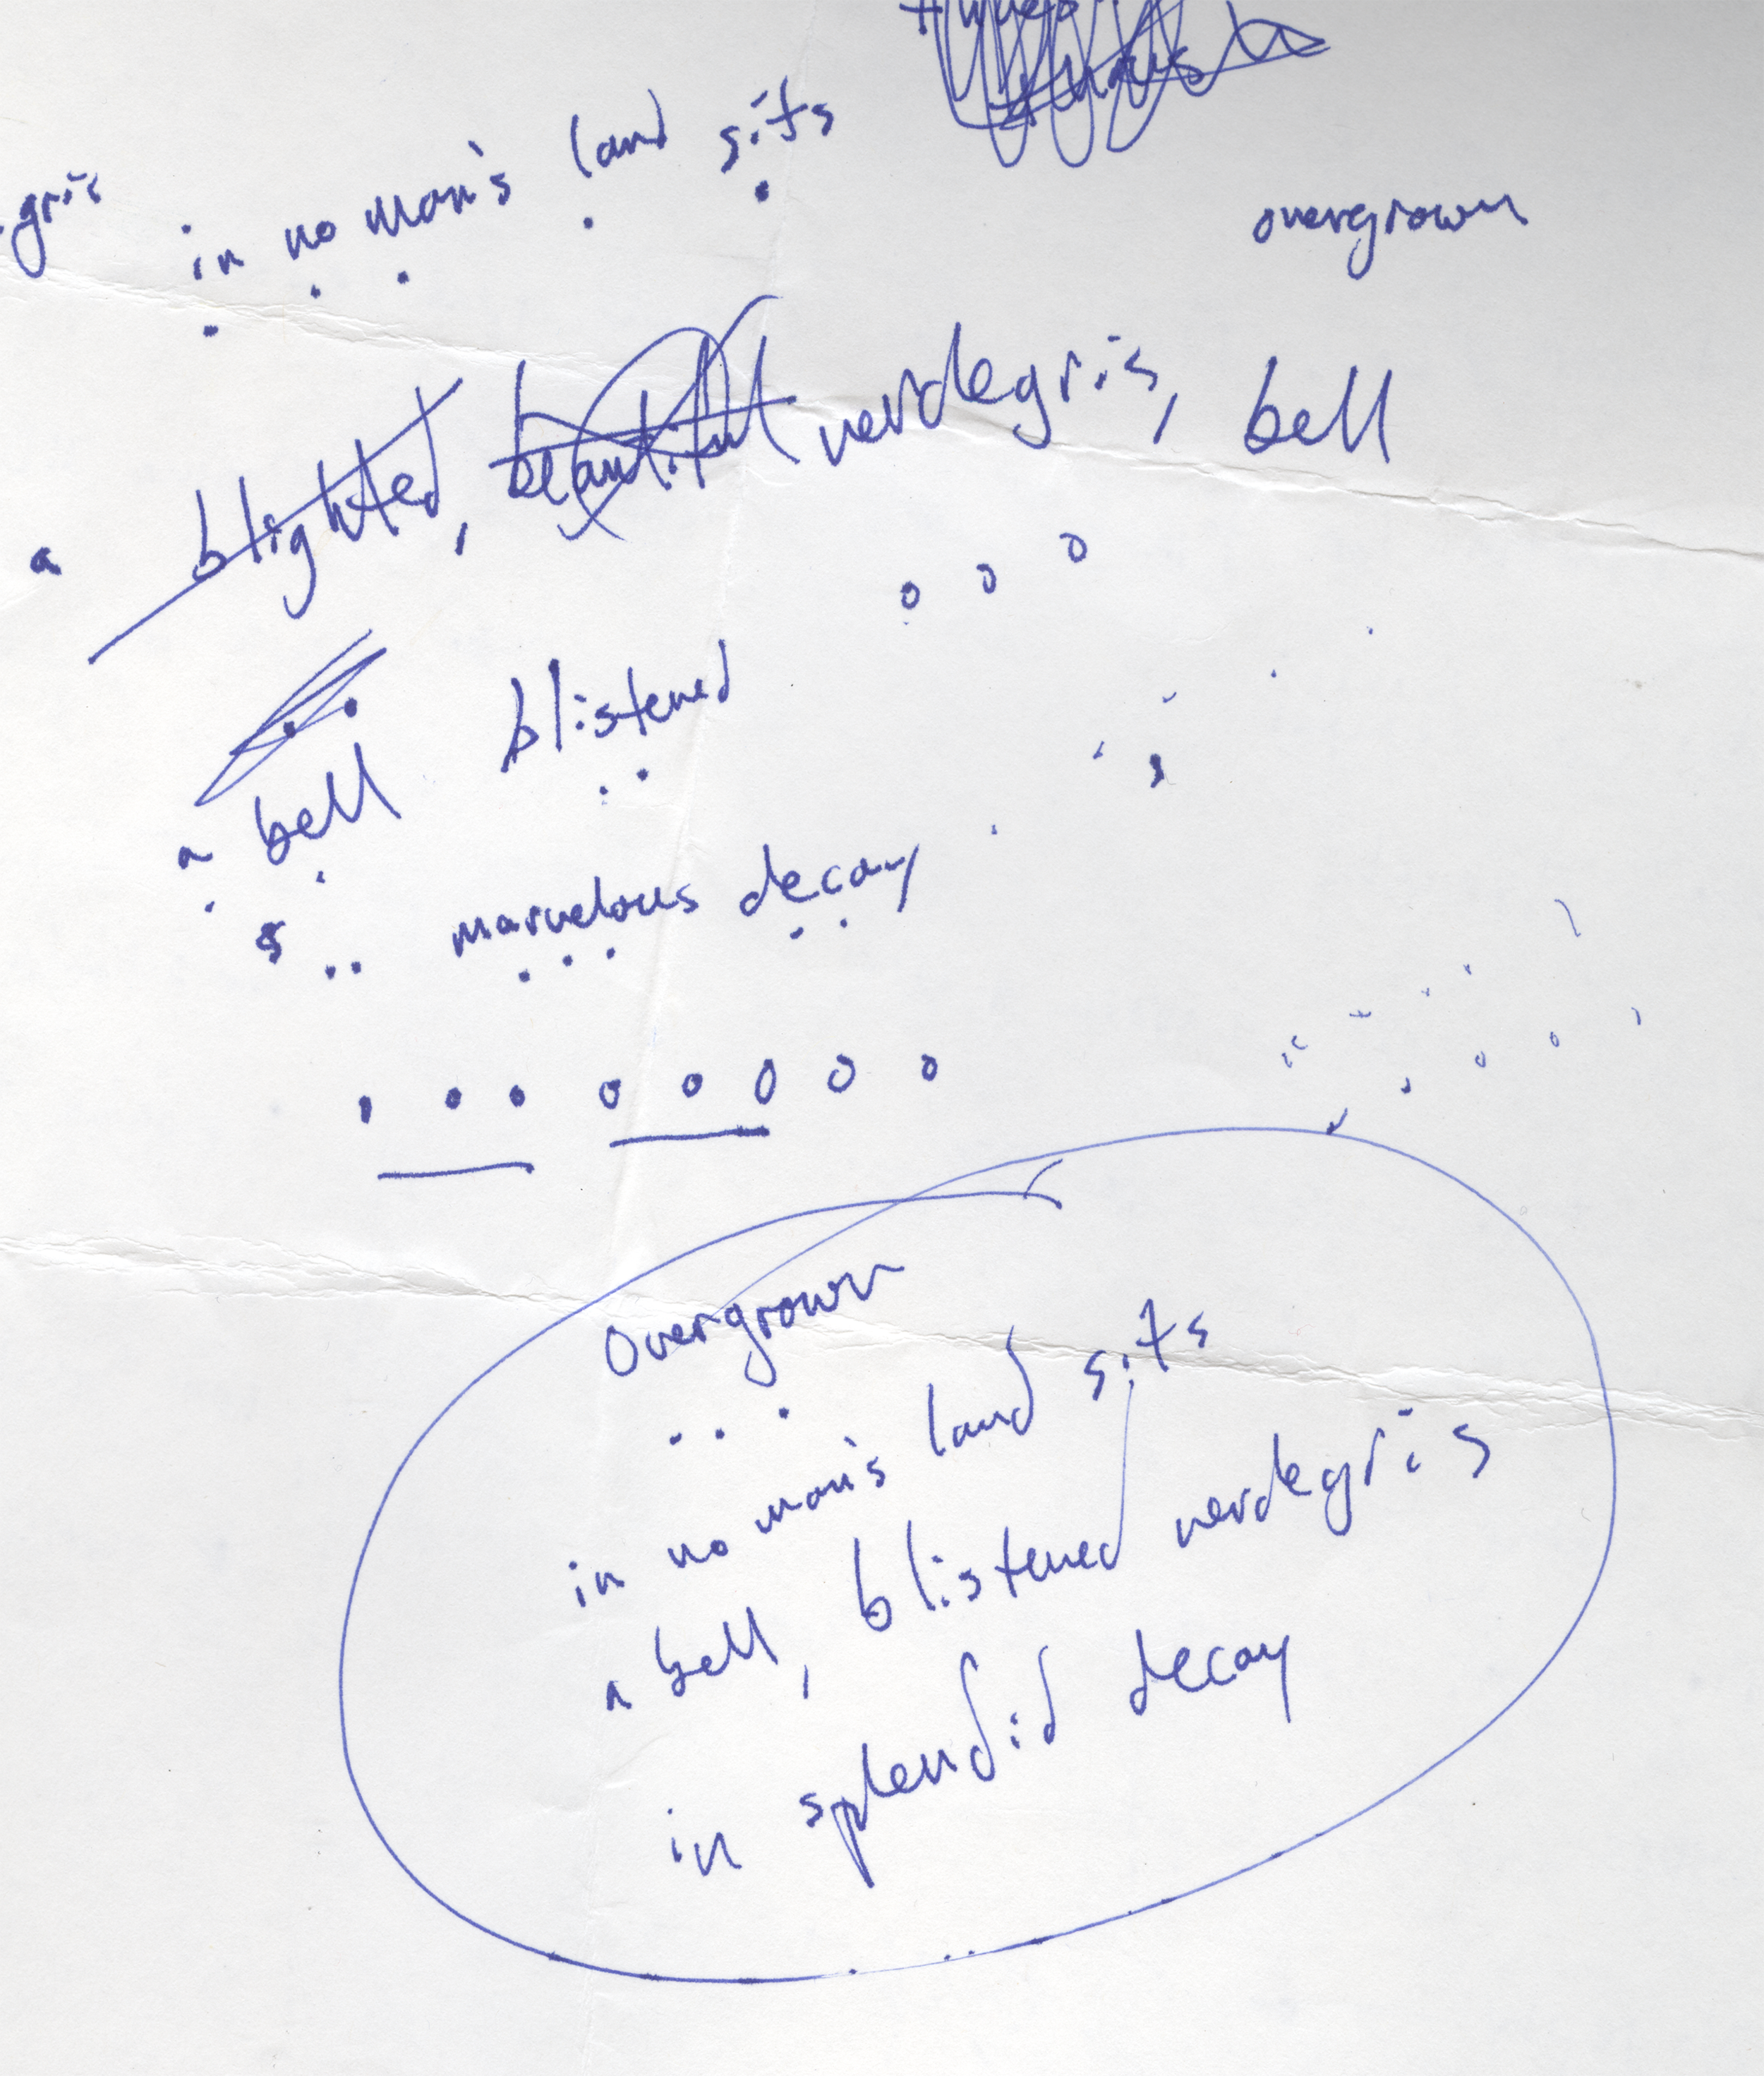 gris
in no man's land sits
overgrown
a blighted, beautiful verdegris, bell
blistered
a bell
marvelous decay
Overgrown
in no man's land sits
a bell, blistered verdegris
in splendid decay